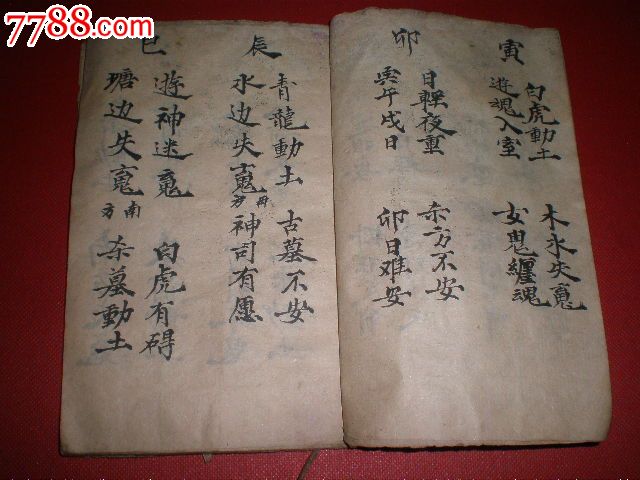 7788.com
寅
白虎動土 木永失䰟
遊魂入室 女鬼纏魂
卯
日輕夜重 東方不安
庚午戌日 卯日难安
辰
青龍動土 古墓不安
水边失䰟 神司有愿
巳
遊神迷䰟 白虎有碍
塘边失䰟南方 杀墓動土